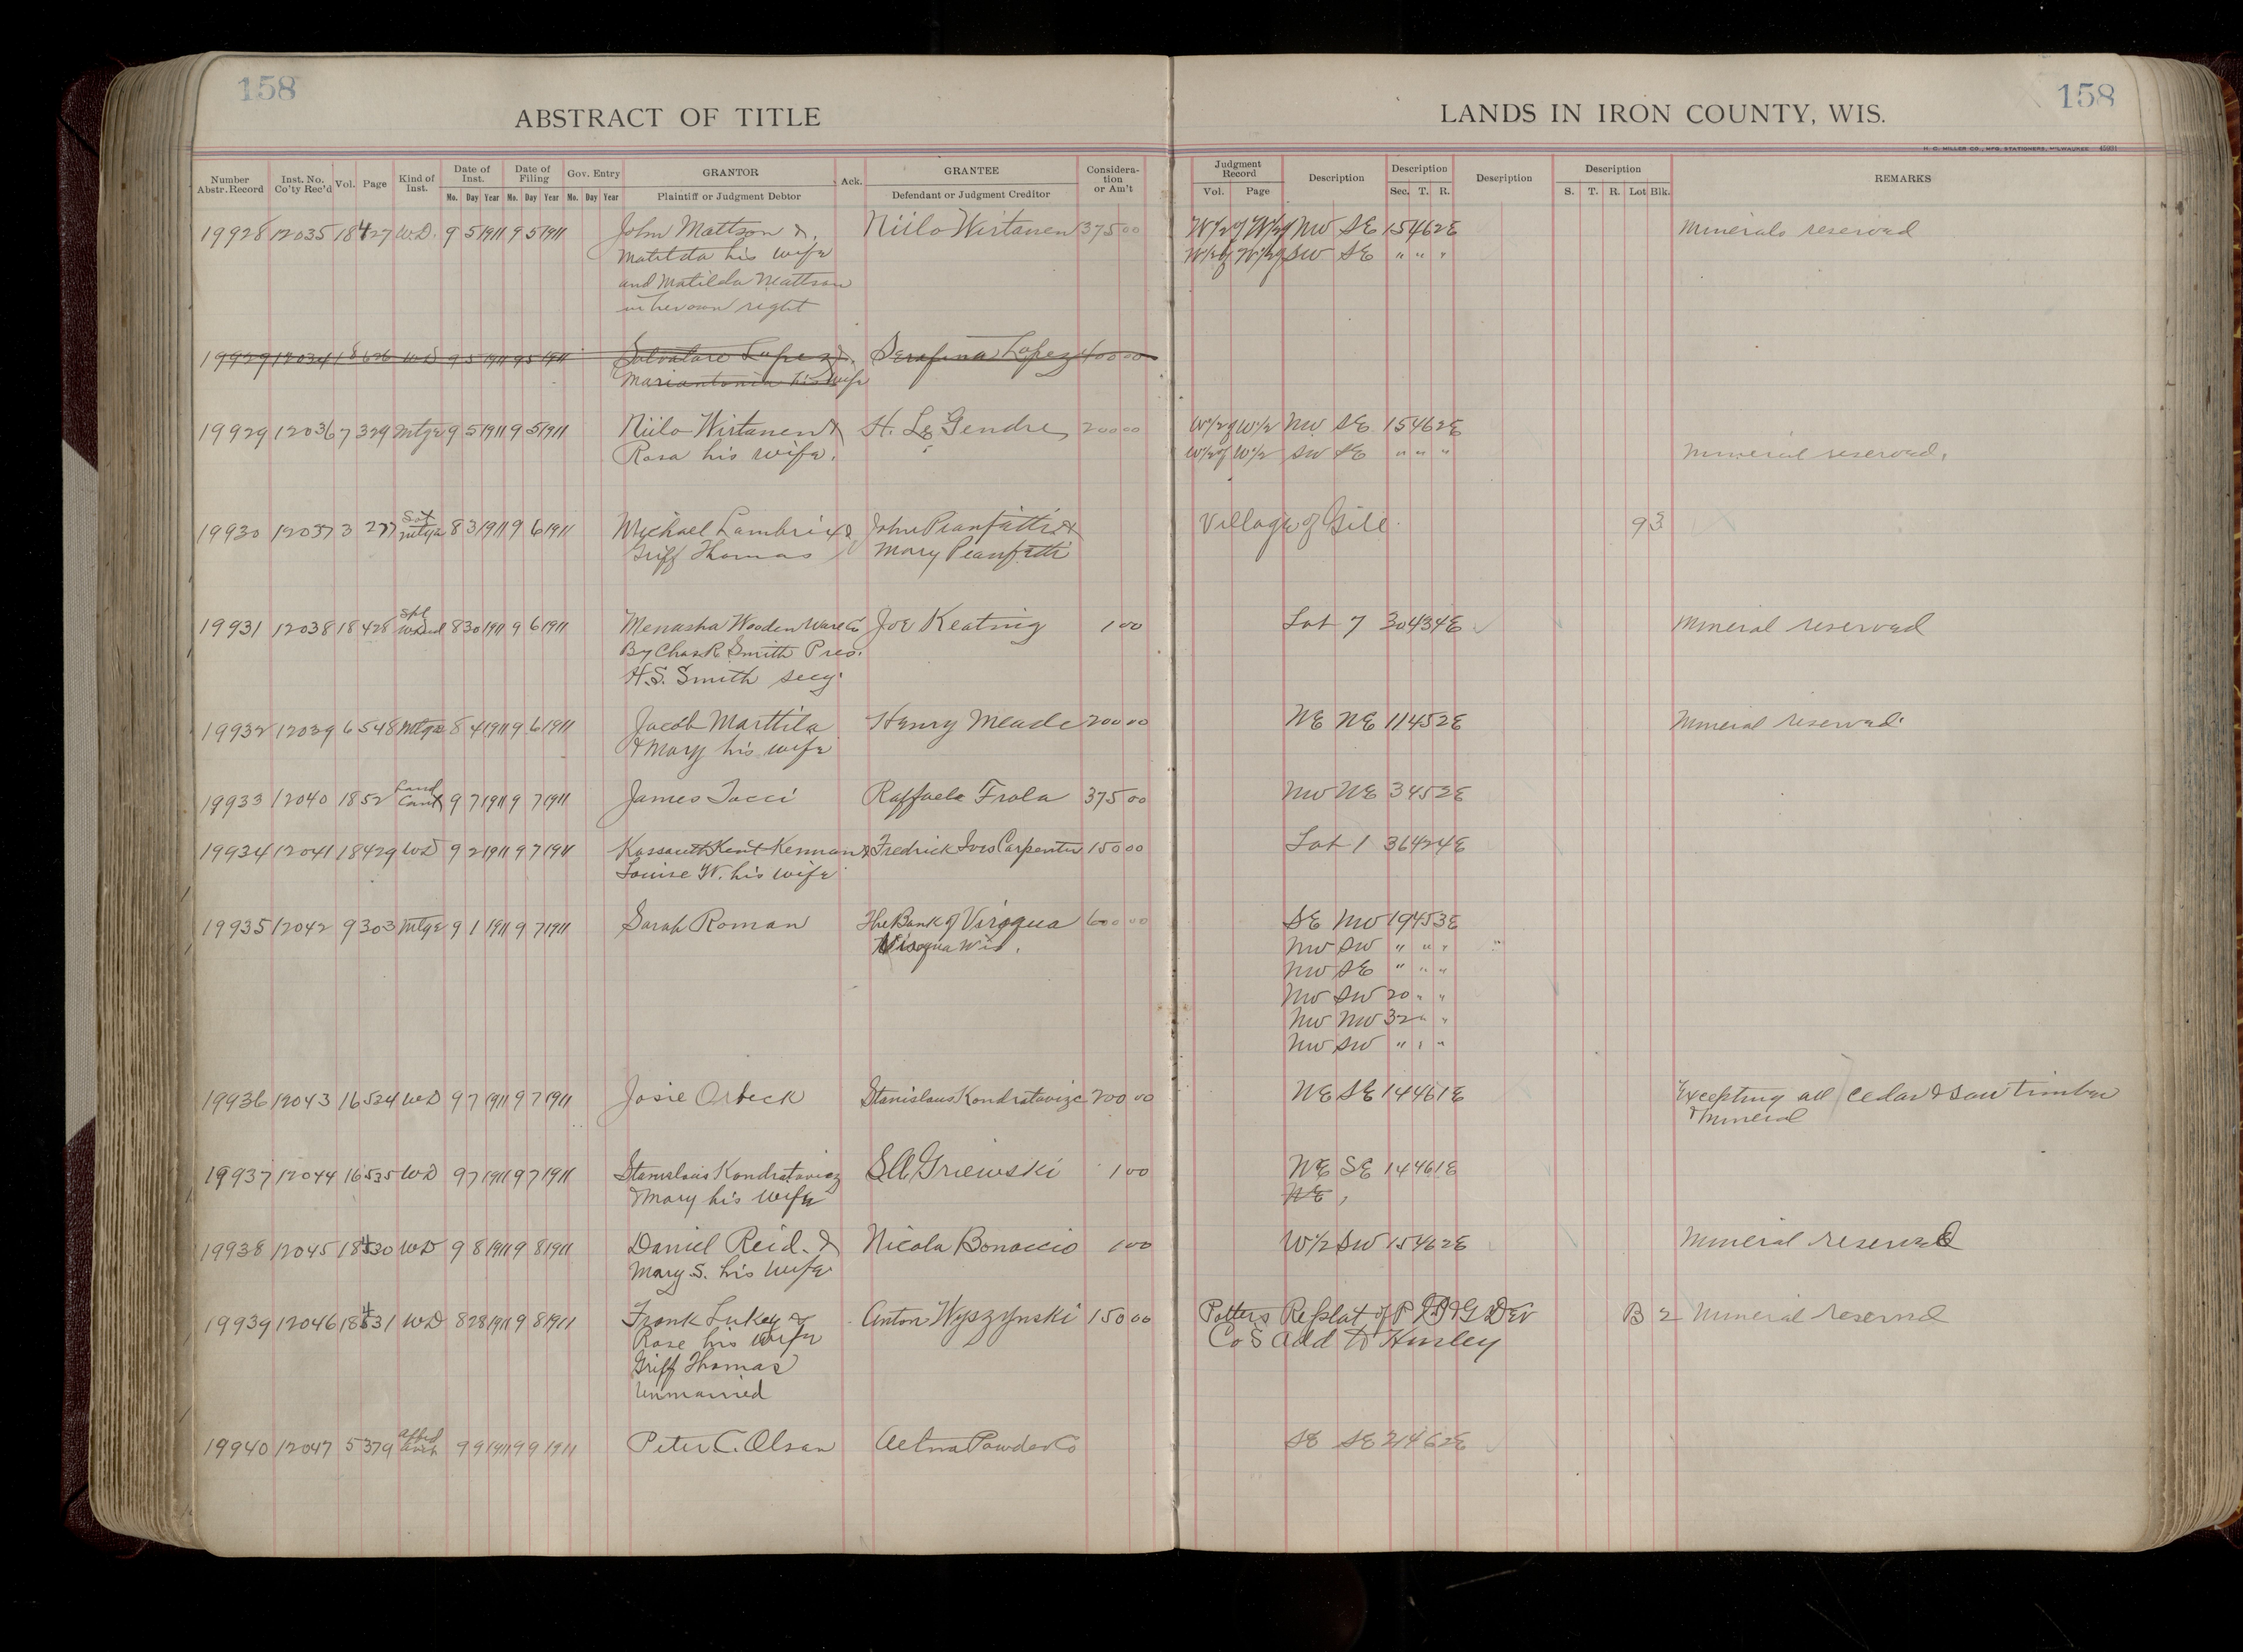 158
158
ABSTRACT OF TITLE
LANDS IN IRON COUNTY, WIS.
H. C. MILLER CO., MFG. STATIONERS, MILWAUKEE
Number Abstr. Record Inst. No. Co'ty Rec'd Vol. Page Kind of Inst. Date of Inst. Date of Filing Gov. Entry GRANTOR Ack. GRANTEE Considera-tion or Am't Judgment Record Description Description Description Description REMARKS
Mo. Day Year Mo. Day Year Mo. Day Year Plaintiff or Judgment Debtor Defendant or Judgment Creditor Vol. Page Sec. T. R. S. T. R. Lot Blk.
19928 12035 18 427 W.D. 9 5 1911 9 5 1911 John Mattson &. Niilo Wirtanen 375 00 W1/2 of W1/2 of NW SE 15 46 2E Minerals reserved
Matilda his wife W1/2 of W1/2 of SW SE " " "
and Matilda Mattson
in her own right
19929 12034 18 626 WD 9 5 1911 9 5 1911 Salvatore Lopez &. Serafina Lopez 400 00
Mariantonia his wife
19929 12036 7 329 Mtge 9 5 1911 9 5 1911 Niilo Wirtanen & H. Le Gendre 200 00 W1/2 of W1/2 NW SE 15 46 2E
Rosa his wife. W1/2 of W1/2 SW SE " " " Mineral reserved.
19930 12037 3 277 Sat Mtge 8 3 1911 9 6 1911 Michael Lambrix & John Pianfatti & Village of Gile 9 3
Griff Thomas Mary Pianfatti
19931 12038 18 428 Spl W Deed 8 30 1911 9 6 1911 Menasha Wooden Ware Co Joe Keating 1 00 Lot 7 30 43 4E Mineral reserved
By Chas R. Smith Pres.
H.S. Smith secy.
19932 12039 6 548 Mtge 8 4 1911 9 6 1911 Jacob Marttila Henry Meade 200 00 NE NE 11 45 2E Mineral reserved.
& Mary his wife
19933 12040 18 52 Land Cont 9 7 1911 9 7 1911 James Tocci Raffaele Frola 375 00 NW NE 3 45 2E
19934 12041 18 429 WD 9 2 1911 9 7 1911 Kossouth Kent Kennan & Fredrick Ives Carpenter 150 00 Lot 1 36 42 4E
Louise W. his wife
19935 12042 9 303 Mtge 9 1 1911 9 7 1911 Sarah Roman The Bank of Viroqua 600 00 SE NW 19 45 3E
Viroqua Wis. NW SW " " "
NW SE " " "
NW SW 20 " "
NW NW 32 " "
NW SW " " "
19936 12043 16 524 WD 9 7 1911 9 7 1911 Josie Orbeck Stanislaus Kondratovizc 200 00 NE SE 14 46 1E Excepting all cedar & saw timber
& mineral
19937 12044 16 535 WD 9 7 1911 9 7 1911 Stanislaus Kondratovicz S.A. Griewski 1 00 NE SE 14 46 1E
& Mary his wife NE
19938 12045 18 430 WD 9 8 1911 9 8 1911 Daniel Reid. & Nicola Bonaccio 1 00 W1/2 SW 15 46 2E Mineral reserved
Mary S. his wife
19939 12046 18 431 WD 8 28 1911 9 8 1911 Frank Lukey & Anton Wyszynski 150 00 Potters Replat of P B & G Dev B 2 Mineral reserved
Rose his wife Co S Add to Hurley
Griff Thomas
Unmarried
19940 12047 5 379 9 9 1911 9 9 1911 Peter C. Olsen Aetna Powder Co SE SE 21 46 2E